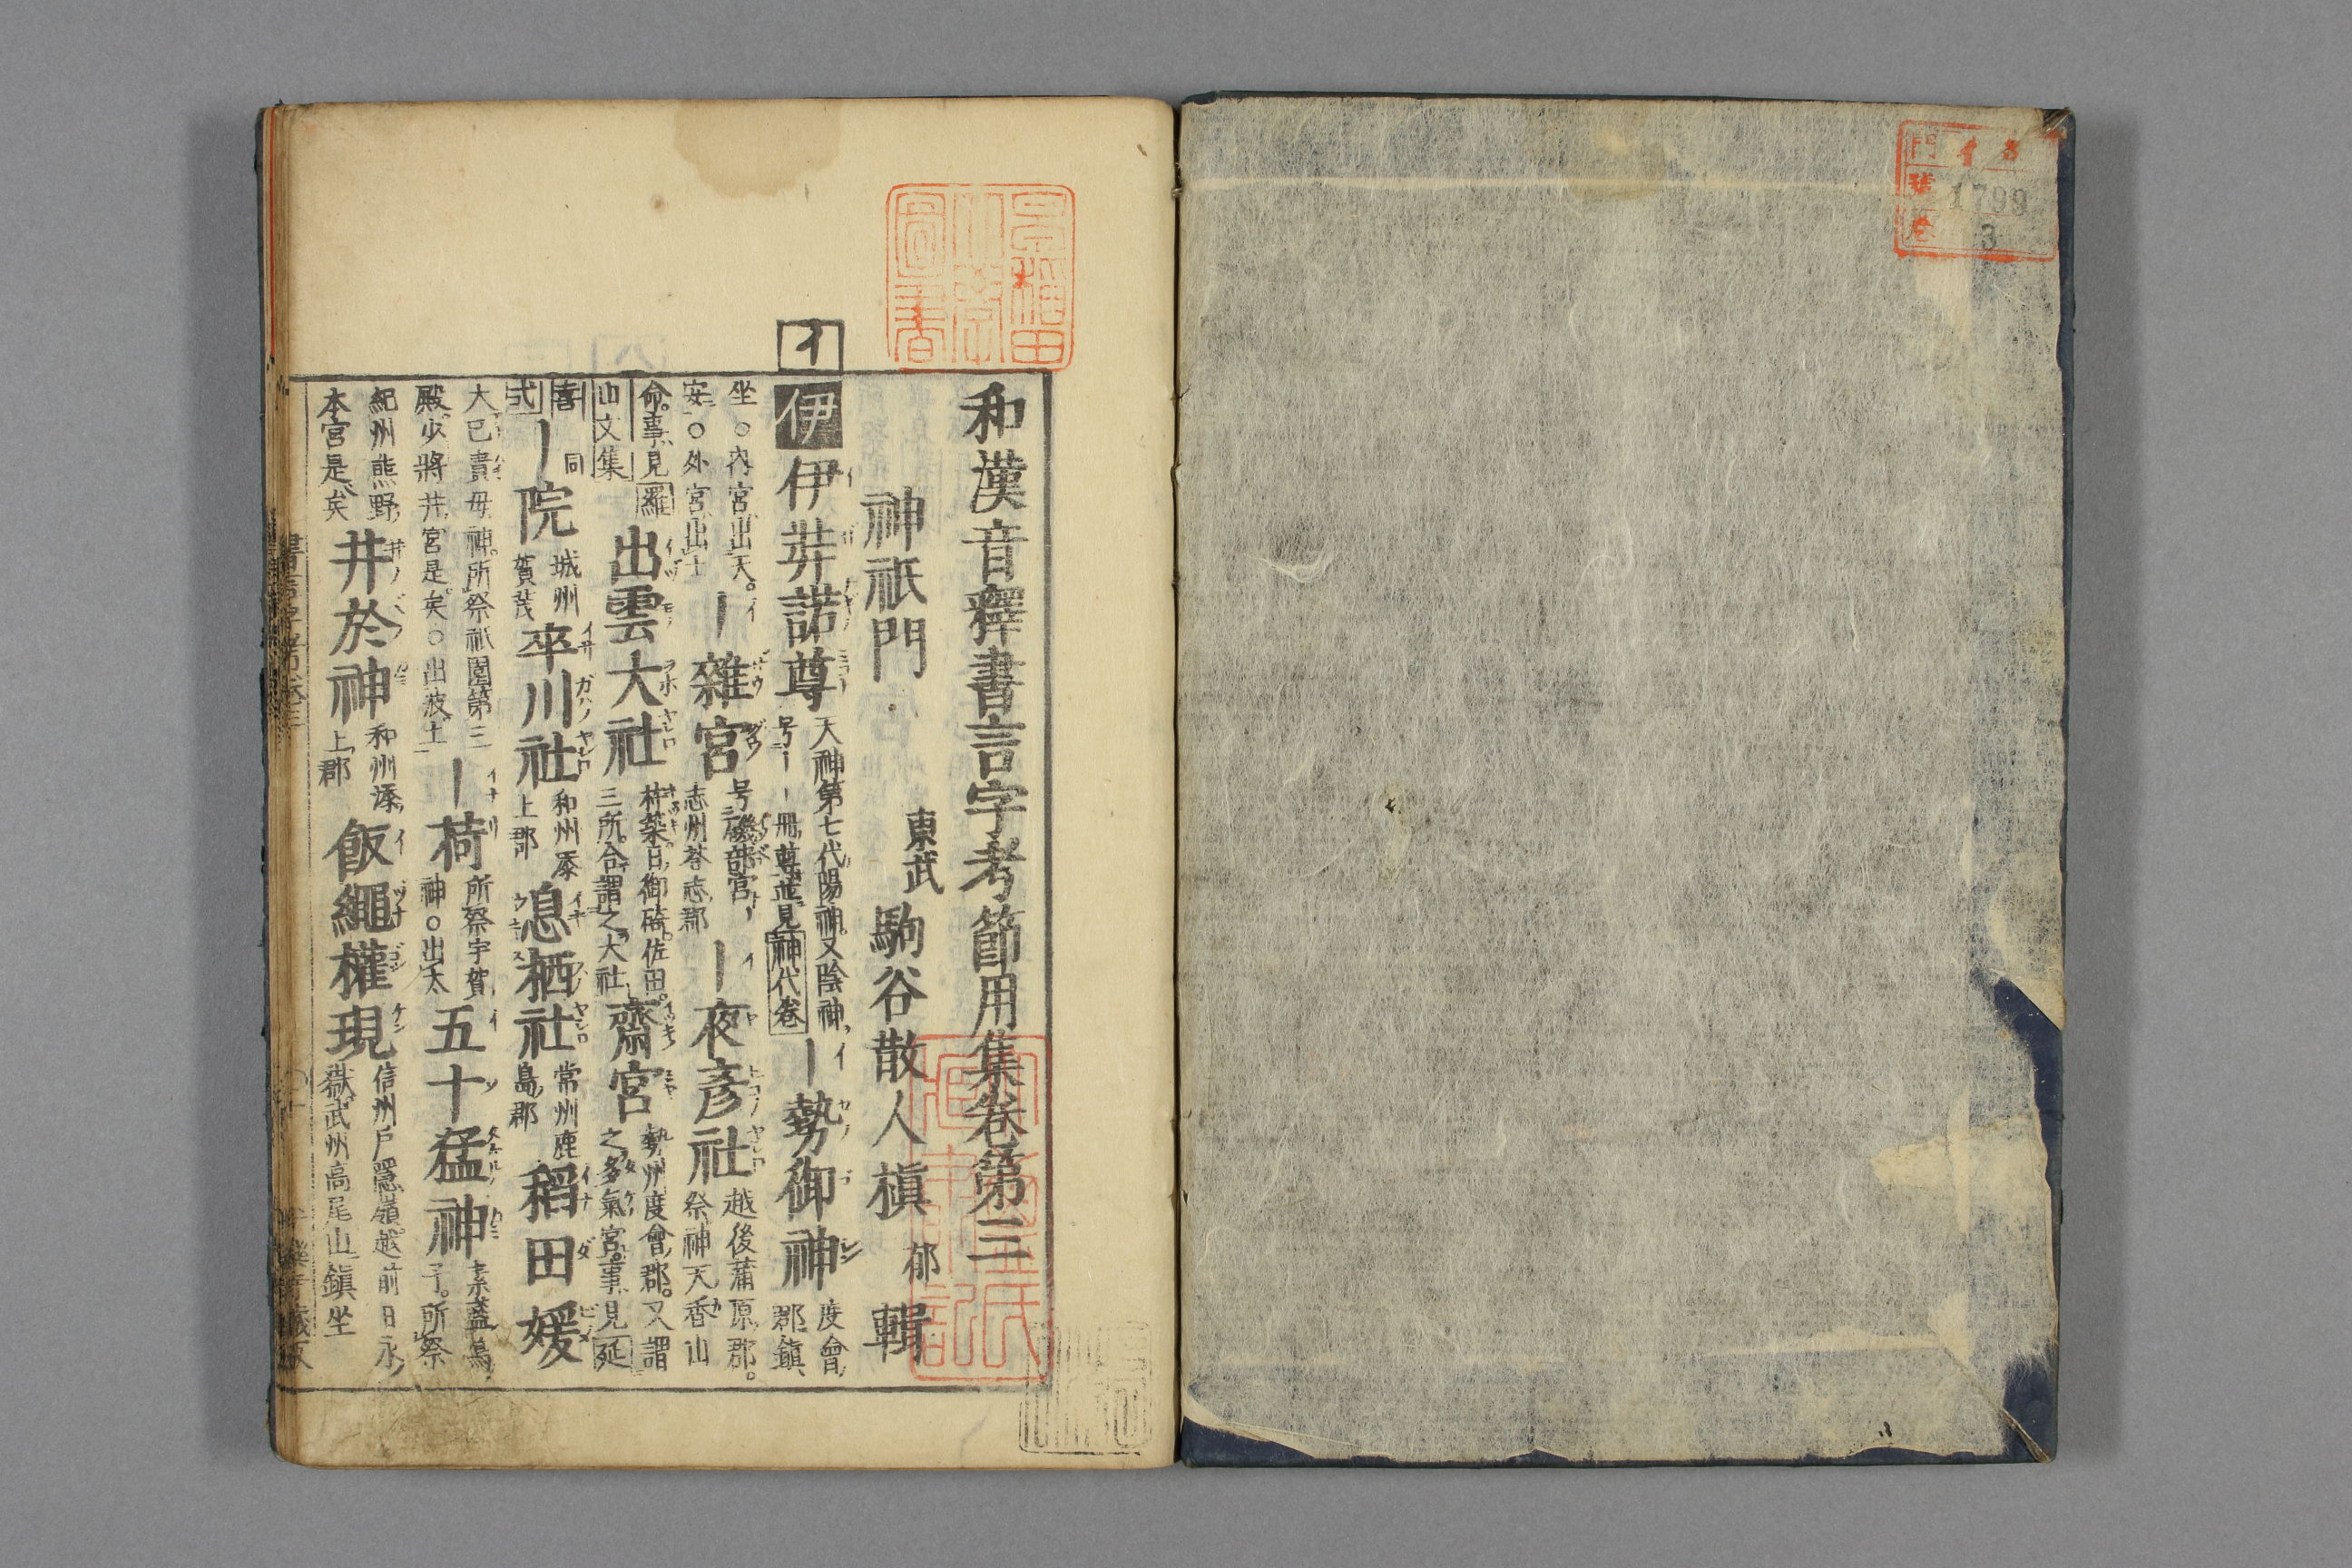 門 イ 3
號 1799
卷 3
早稲田
大學
圖書
和漢音釋書言字考節用集卷第三
神祇門 東武 駒谷散人槇 郁 輯
イ
伊 伊弉諾尊 天神第七代陽神又陰神
号——冊尊並見神代卷 —勢御神 度會
郡鎭
坐○內宮出天。
安○外宮出士 —雜宮 号磯部宮
志州荅志郡 —夜彦社 越後蒲原郡。
祭神天香山
命。事見羅
山文集 出雲大社 杵築日御碕。佐田。
三所。合謂之大社 齋宮 勢州度會郡。又謂
之多氣宮。事見延
喜
式 同 —院 城州
賀茂 率川社 和州添
上郡 息栖社 常州鹿
島郡 稻田媛
大己貴母神。所祭祇園第三
殿。少將井宮是矣○出波士 —荷 所祭宇賀
神○出太 五十猛神 素盞烏
子。所祭
紀州熊野
本宮是矣 井於神 和州添
上郡 飯繩權現 信州戸隱嶺越前日永
嶽武州高尾山鎭坐